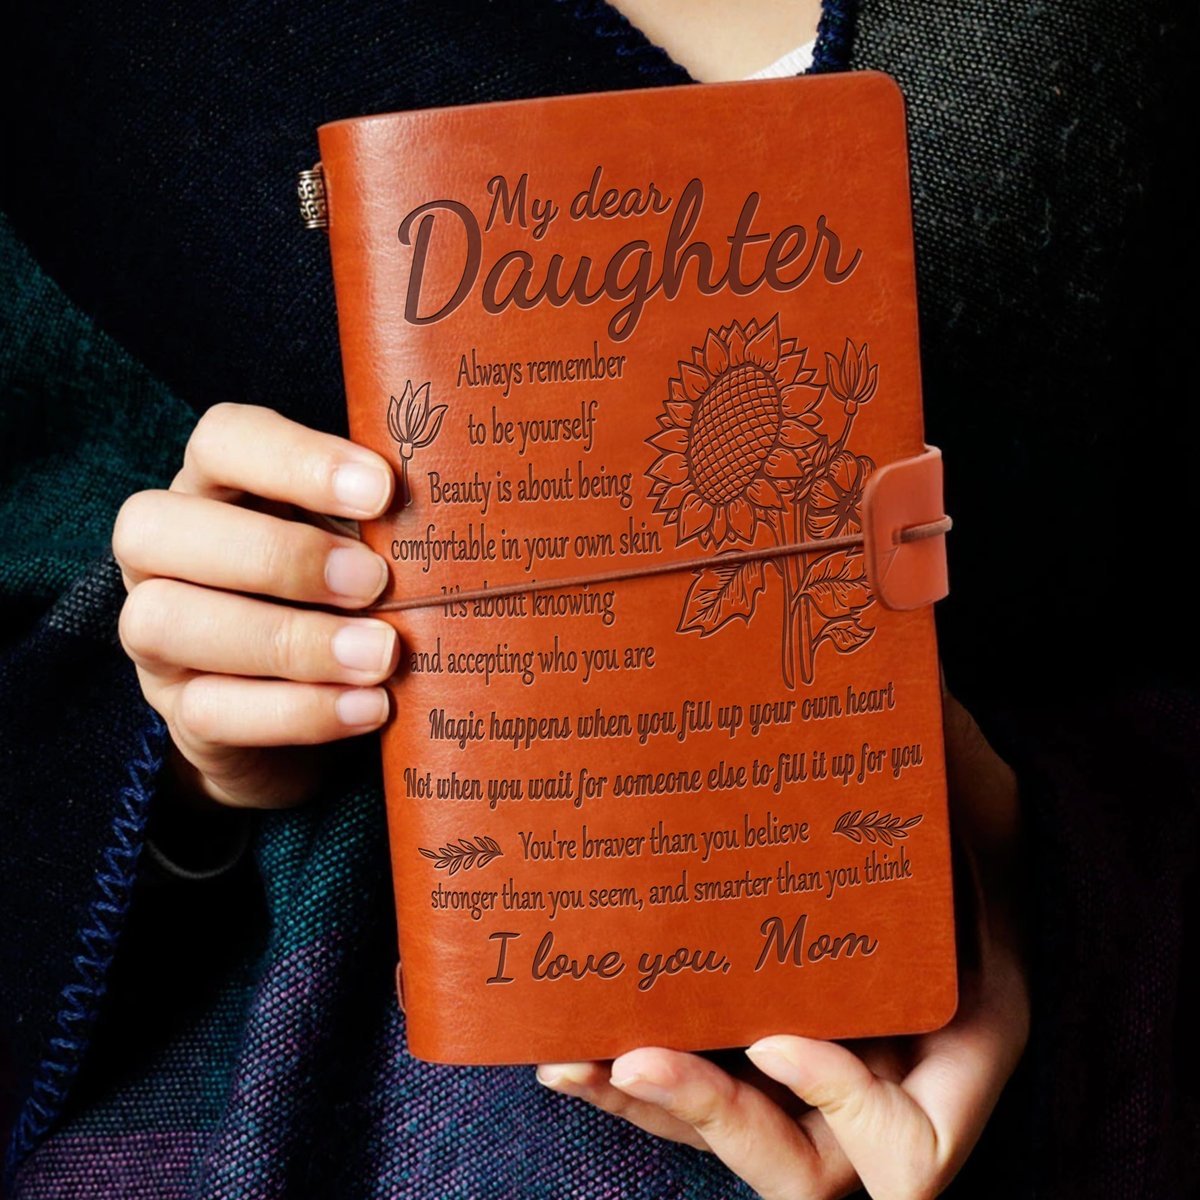 My dear
Daughter
Always remember
to be yourself
Beauty is about being
comfortable in your own skin
It's about knowing
and accepting who you are
Magic happens when you fill up your own heart
Not when you wait for someone else to fill it up for you
You're braver than you believe
stronger than you seem, and smarter than you think
I love you, Mom